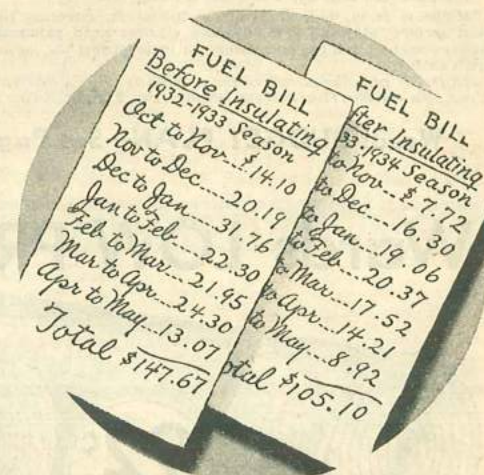 FUEL BILL
Before Insulating
1932-1933 Season
Oct to Nov... $14.10
Nov to Dec.... 20.19
Dec to Jan.... 31.76
Jan to Feb.... 22.30
Feb to Mar.... 21.95
Mar to Apr... 24.30
Apr to May... 13.07
Total $147.67
FUEL BILL
fter Insulating
33-1934 Season
to Nov... $7.72
to Dec.... 16.30
to Jan.... 19.06
to Feb.... 20.37
to Mar.... 17.52
to Apr.... 14.21
to May... 8.92
otal $105.10